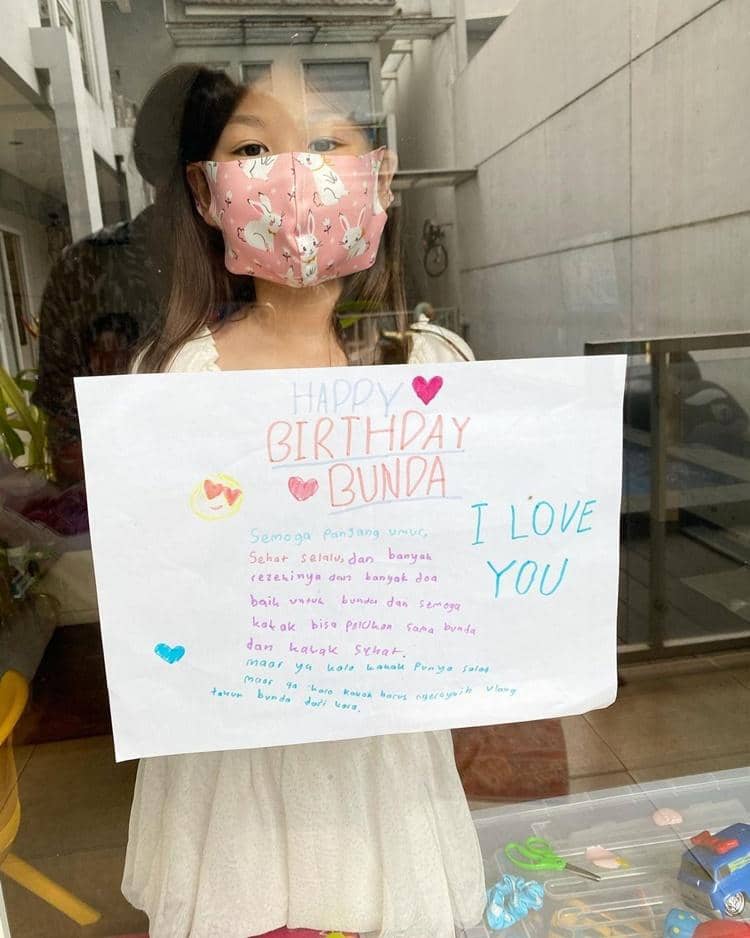 HAPPY
BIRTHDAY
BUNDA
I LOVE
YOU
Semoga panjang umur,
Sehat selalu, dan banyak
rezekinya dan banyak doa
baik untuk bunda dan semoga
kakak bisa pelukan sama bunda
dan kakak sehat.
maaf ya kalo kakak punya salah
maaf ya kalo kakak harus ngerayain ulang
tahun bunda dari kaca.